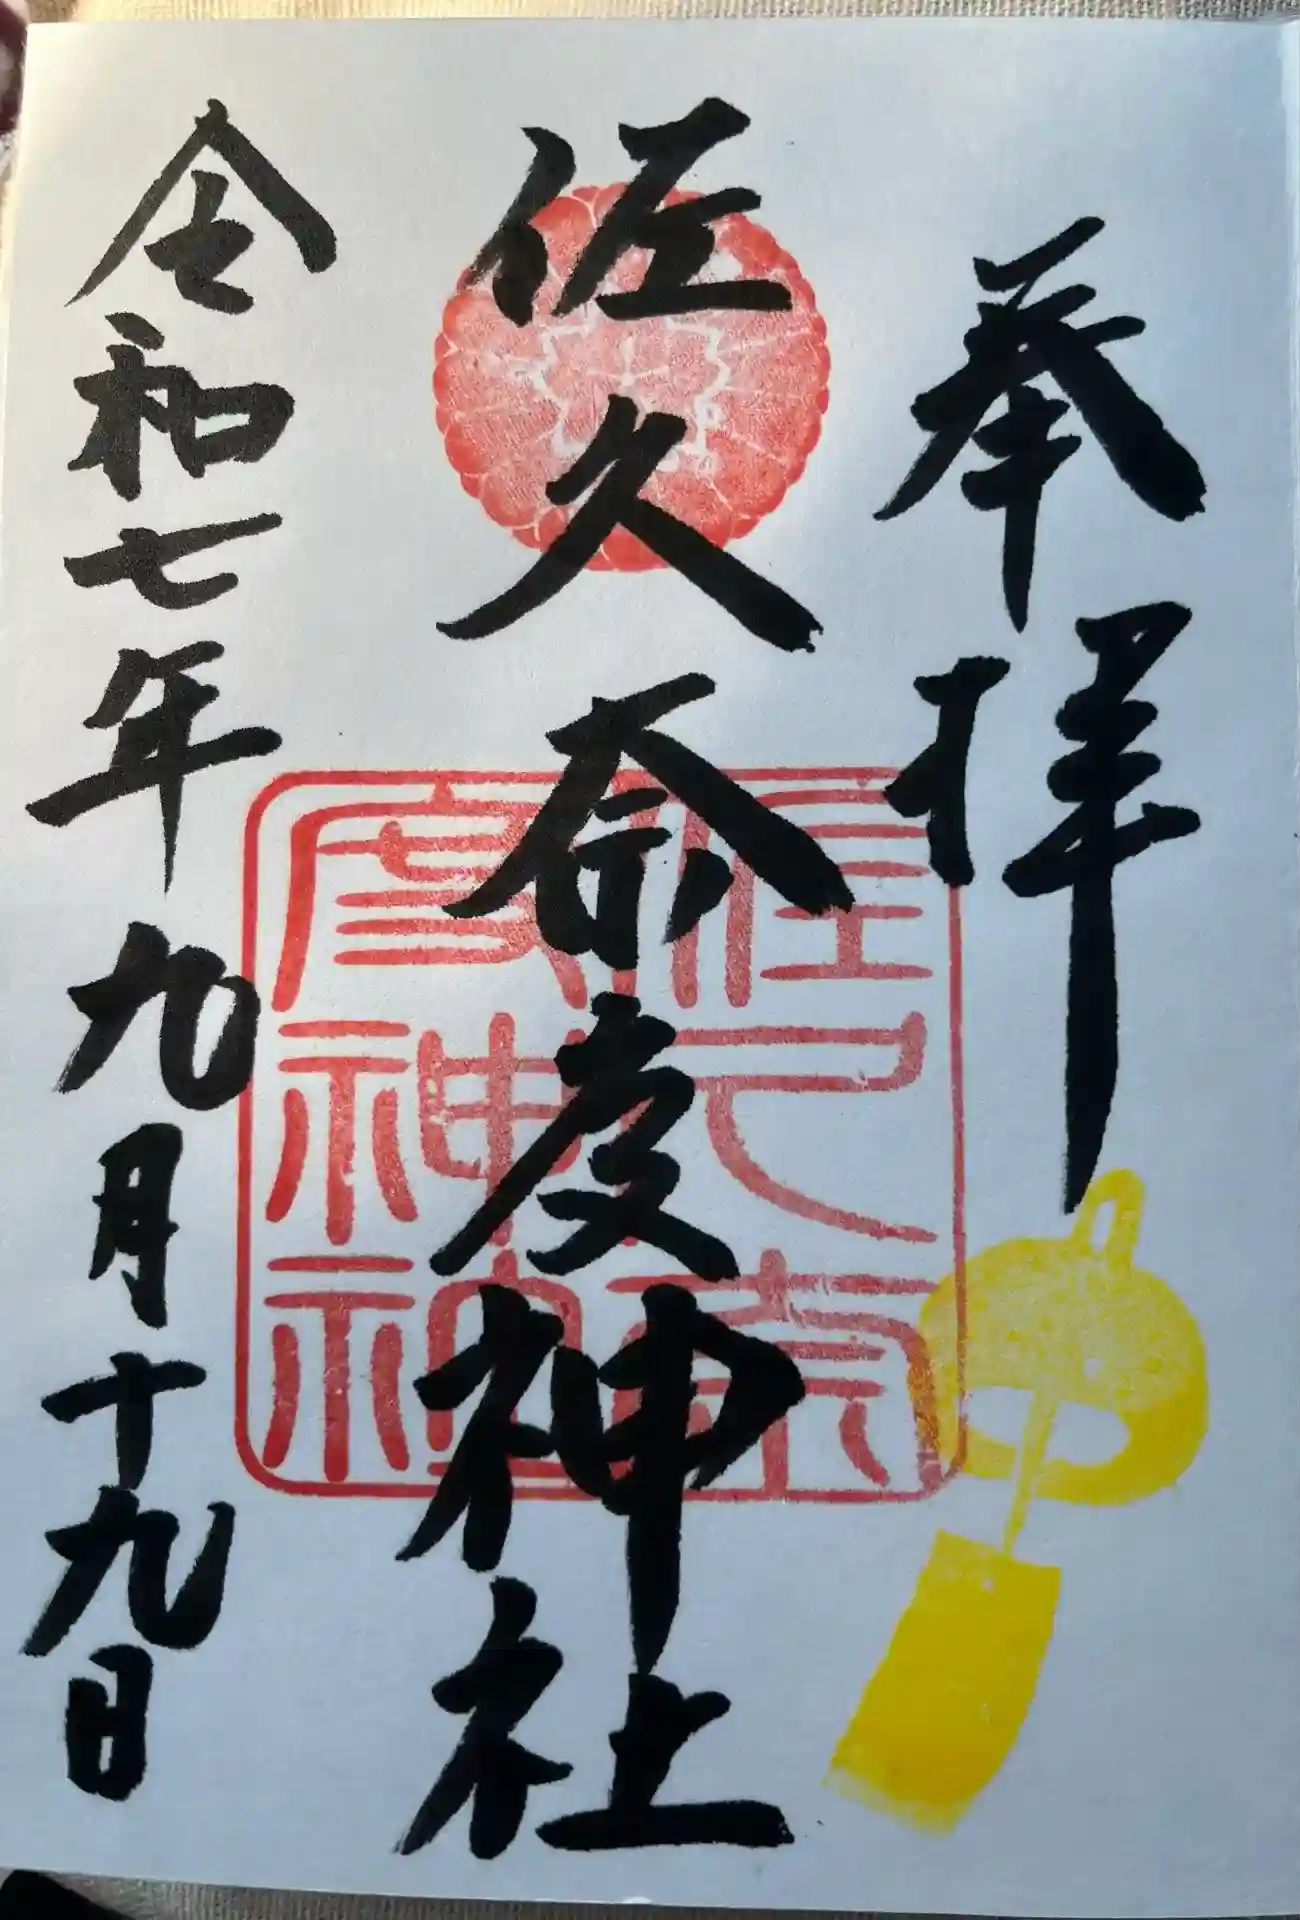 奉拝
佐久奈度神社
佐久奈
度神社
令和七年九月十九日